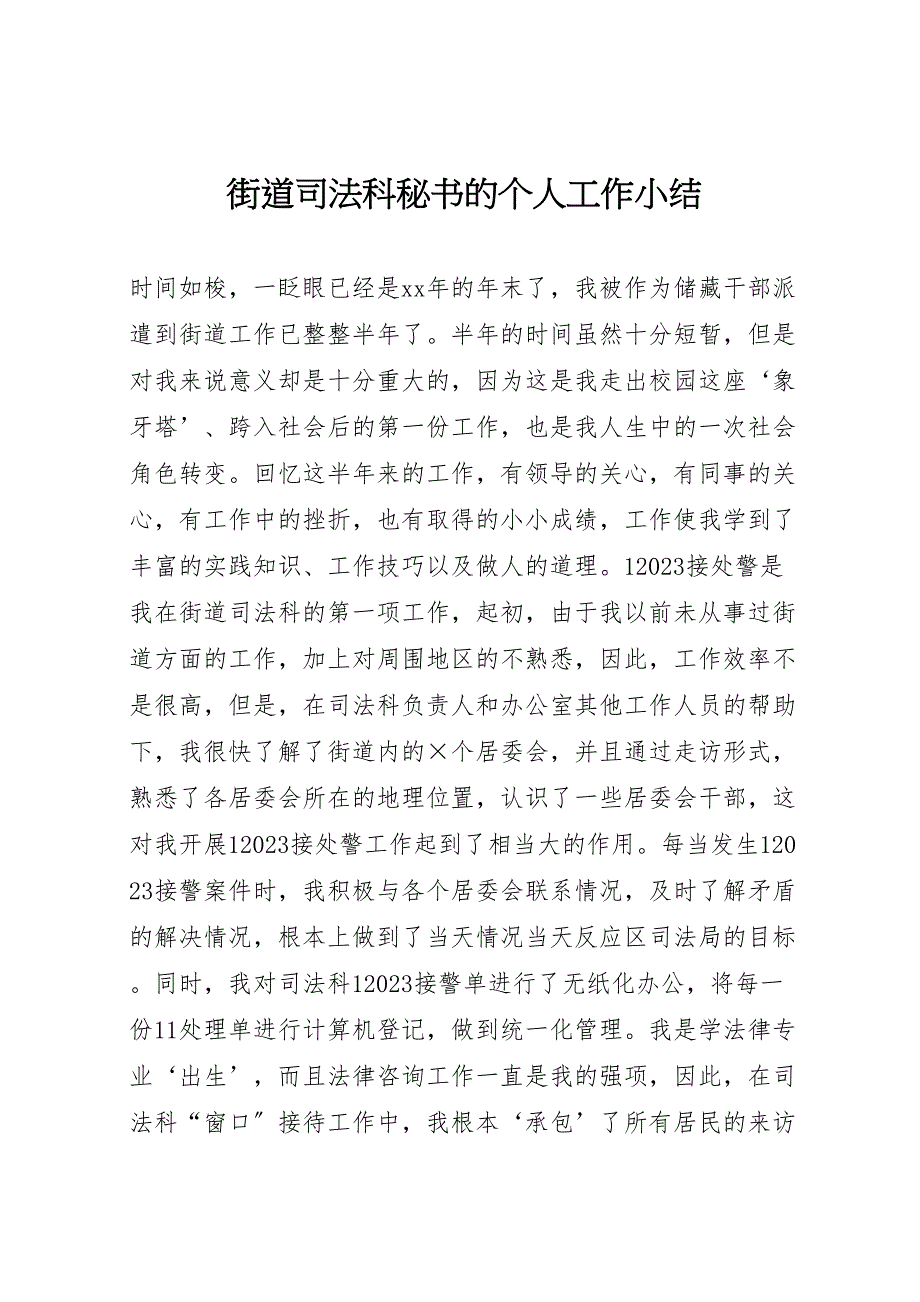 街道司法科秘书的个人工作小结
时间如梭，一眨眼已经是xx年的年末了，我被作为储藏干部派
遣到街道工作已整整半年了。半年的时间虽然十分短暂，但是
对我来说意义却是十分重大的，因为这是我走出校园这座‘象
牙塔’、跨入社会后的第一份工作，也是我人生中的一次社会
角色转变。回忆这半年来的工作，有领导的关心，有同事的关
心，有工作中的挫折，也有取得的小小成绩，工作使我学到了
丰富的实践知识、工作技巧以及做人的道理。12023接处警是
我在街道司法科的第一项工作，起初，由于我以前未从事过街
道方面的工作，加上对周围地区的不熟悉，因此，工作效率不
是很高，但是，在司法科负责人和办公室其他工作人员的帮助
下，我很快了解了街道内的×个居委会，并且通过走访形式，
熟悉了各居委会所在的地理位置，认识了一些居委会干部，这
对我开展12023接处警工作起到了相当大的作用。每当发生120
23接警案件时，我积极与各个居委会联系情况，及时了解矛盾
的解决情况，根本上做到了当天情况当天反应区司法局的目标
。同时，我对司法科12023接警单进行了无纸化办公，将每一
份11处理单进行计算机登记，做到统一化管理。我是学法律专
业‘出生’，而且法律咨询工作一直是我的强项，因此，在司
法科“窗口〞接待工作中，我根本‘承包’了所有居民的来访